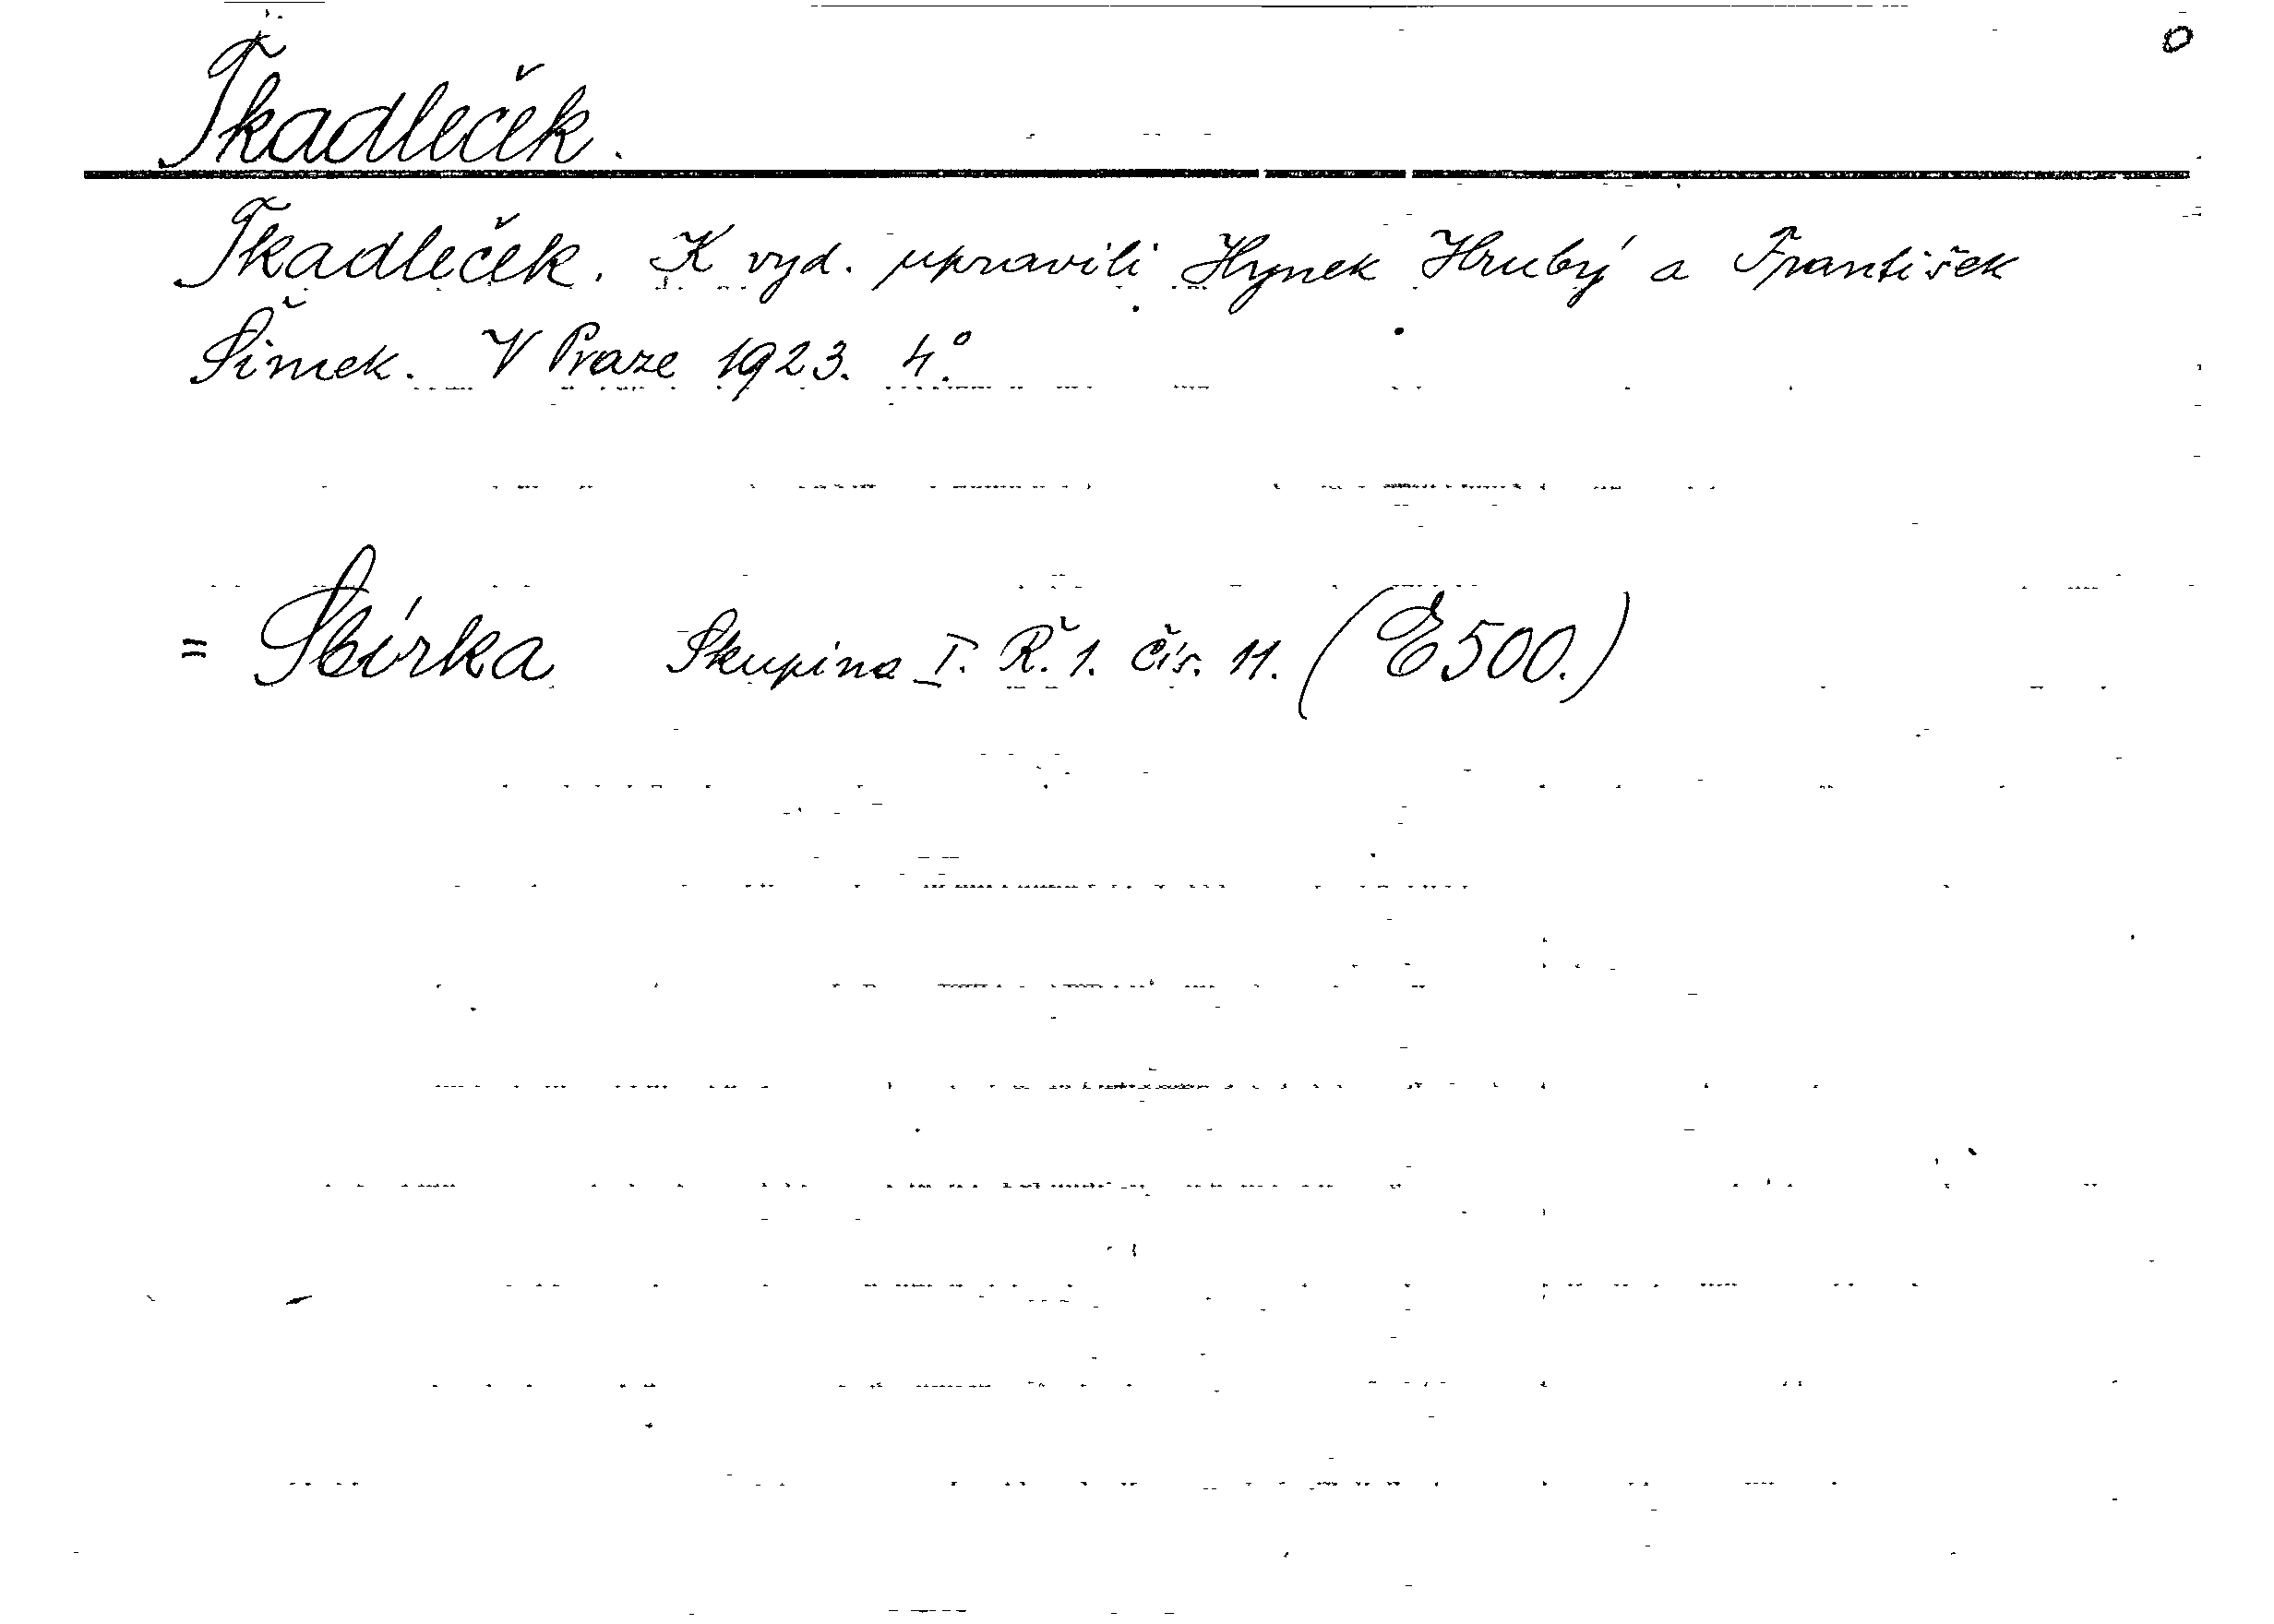 Tkadleček.
Tkadleček. K vyd. upravili Hynek Hrubý a František
Šimek. V Praze 1923. 4.°
= Sbírka Skupina I. Ř. 1. čís. 11. (E500.)